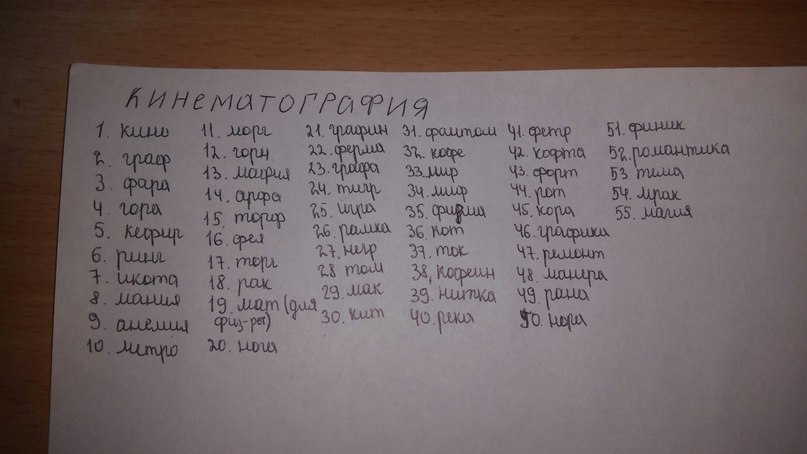 КИНЕМАТОГРАФИЯ
1. кино
2. граф
3. фара
4. гора
5. кефир
6. ринг
7. икота
8. мания
9. анемия
10. метро
11. морг
12. горн
13. мафия
14. арфа
15. торф
16. фея
17. торг
18. рак
19. мат (для
физ-ры)
20. нога
21. графин
22. ферма
23. графа
24. тигр
25. игра
26. рамка
27. негр
28. том
29. мак
30. кит
31. фантом
32. кофе
33. мир
34. миф
35. фирма
36. кот
37. ток
38. кофеин
39. нитка
40. река
41. фетр
42. кофта
43. форт
44. рот
45. кора
46. графика
47. ремонт
48. манера
49. рана
50. нора
51. финик
52. романтика
53. тема
54. мрак
55. магия